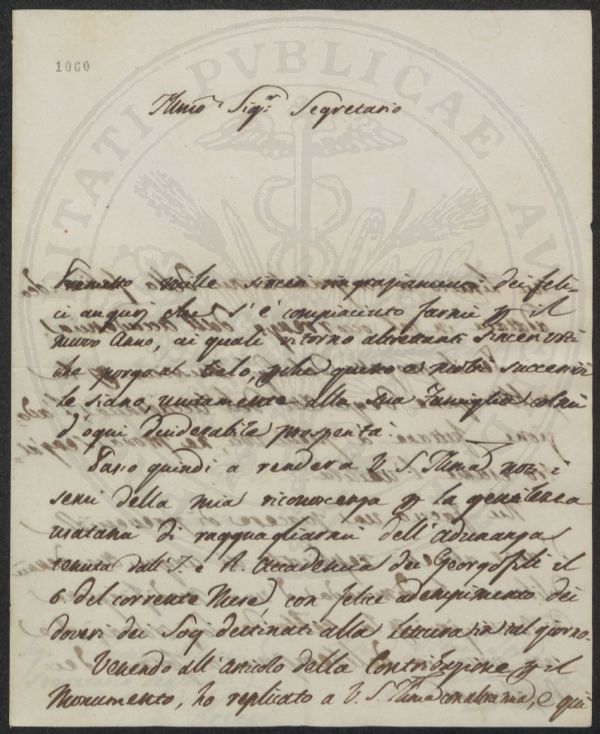 1060
Illmo Sigr Segretario
Premetto mille sinceri ringraziamenti dei feli-
ci augurj che s'è compiaciuto farmi p il
nuovo Anno, ai quali ritorno altrettanti sinceri voti
che porgo al Cielo, questo e molti successivi
le siano, unitamente alla sua Famiglia colmi
d'ogni desiderabile prosperità.
Passo quindi a rendere V. S. Illma noti i
sensi della mia riconoscenza p la gentilezza
usatami di ragguagliarmi dell'adunanza
tenuta dall'I. e R. Accademia dei Georgofili il
6. del corrente Mese, con felice adempimento dei
doveri dei Soci destinati alla Lettura in tal giorno.
Venendo all'articolo della Contribuzione p il
Monumento, ho replicato a V. S. Illma con altra mia, e qui